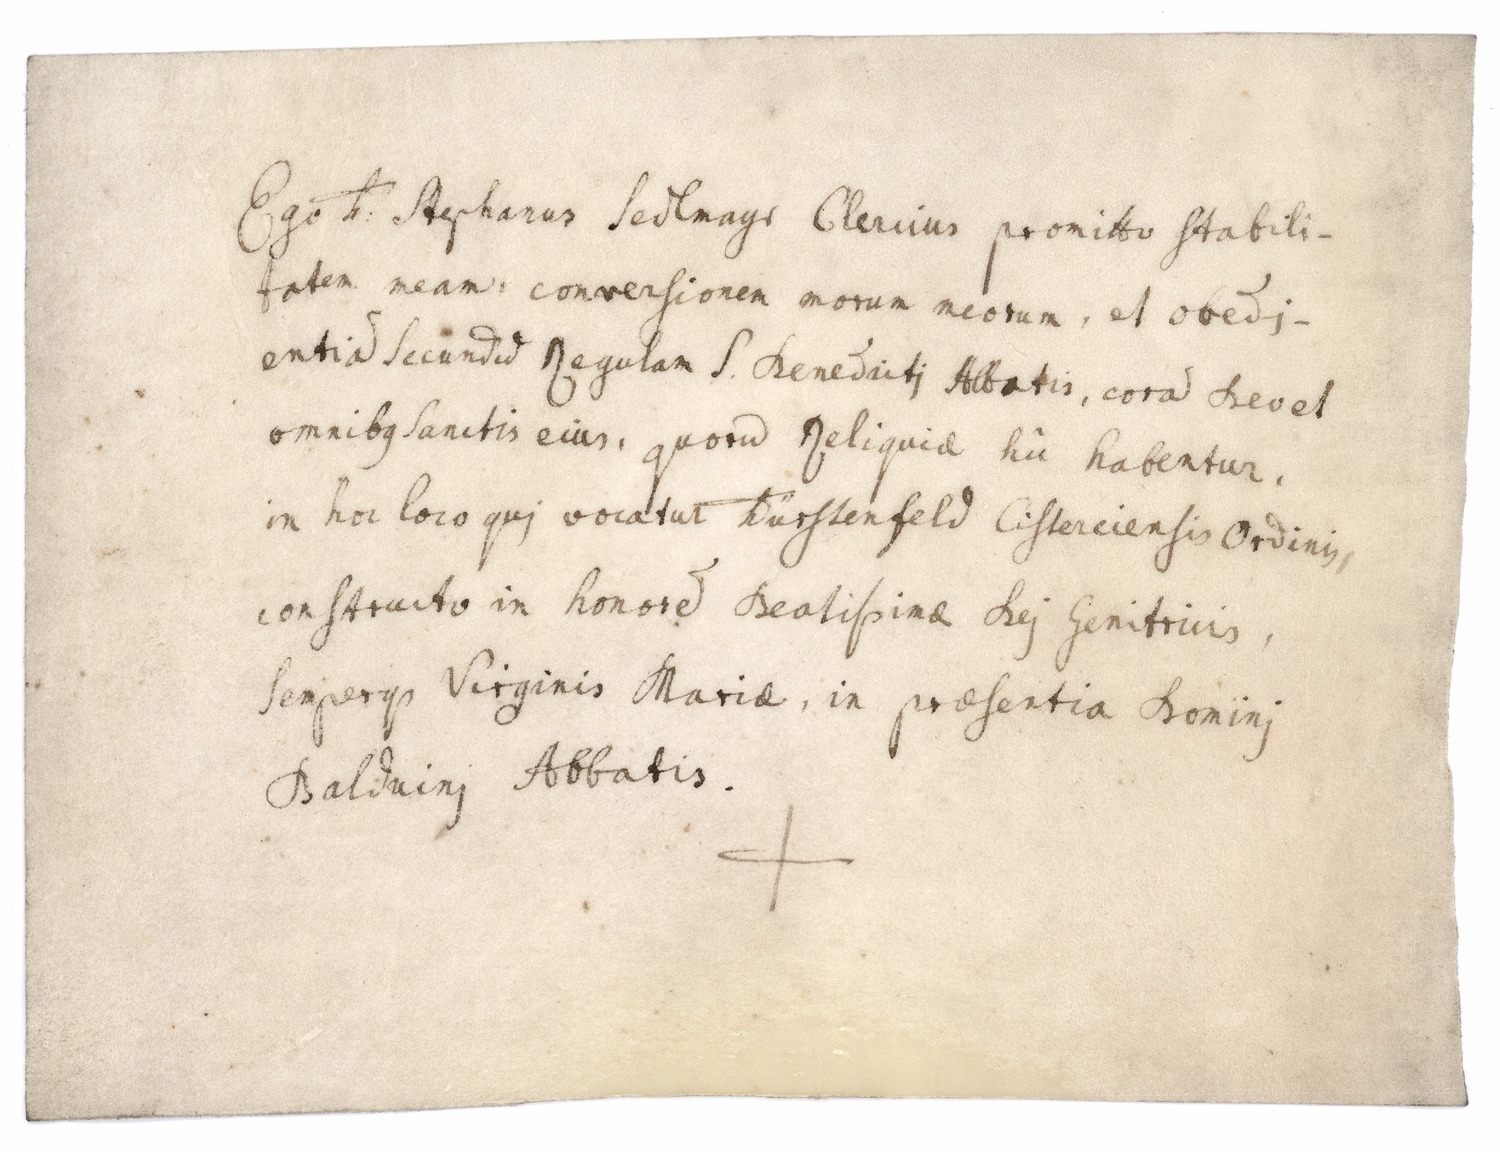 Ego Fr: Stephanus Sedlmayr Clericus promitto stabili-
tatem meam, conversionem morum meorum, et obedj-
entiã Secundũ Regulam S. Benedictj Abbatis, corã Deo et
omnibq Sanctis eius, quorũ Reliquiæ hîc habentur,
in hoc loco quj vocatur Fürstenfeld Cisterciensis Ordinis,
constructo in honorẽ Beatissimæ Dej Genitricis,
Semperq Virginis Mariæ, in præsentia Domini
Balduinj Abbatis.